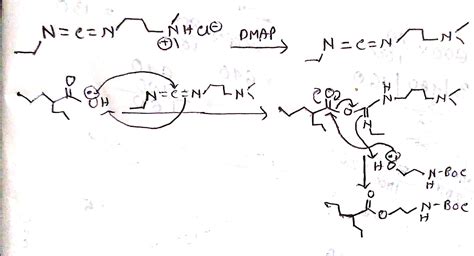 N=C=N N HCl⊖ DMAP N=C=N N
⊕
O O H N=C=N N O O N H N
N
H O N-BOC
H
O O N-BOC
H